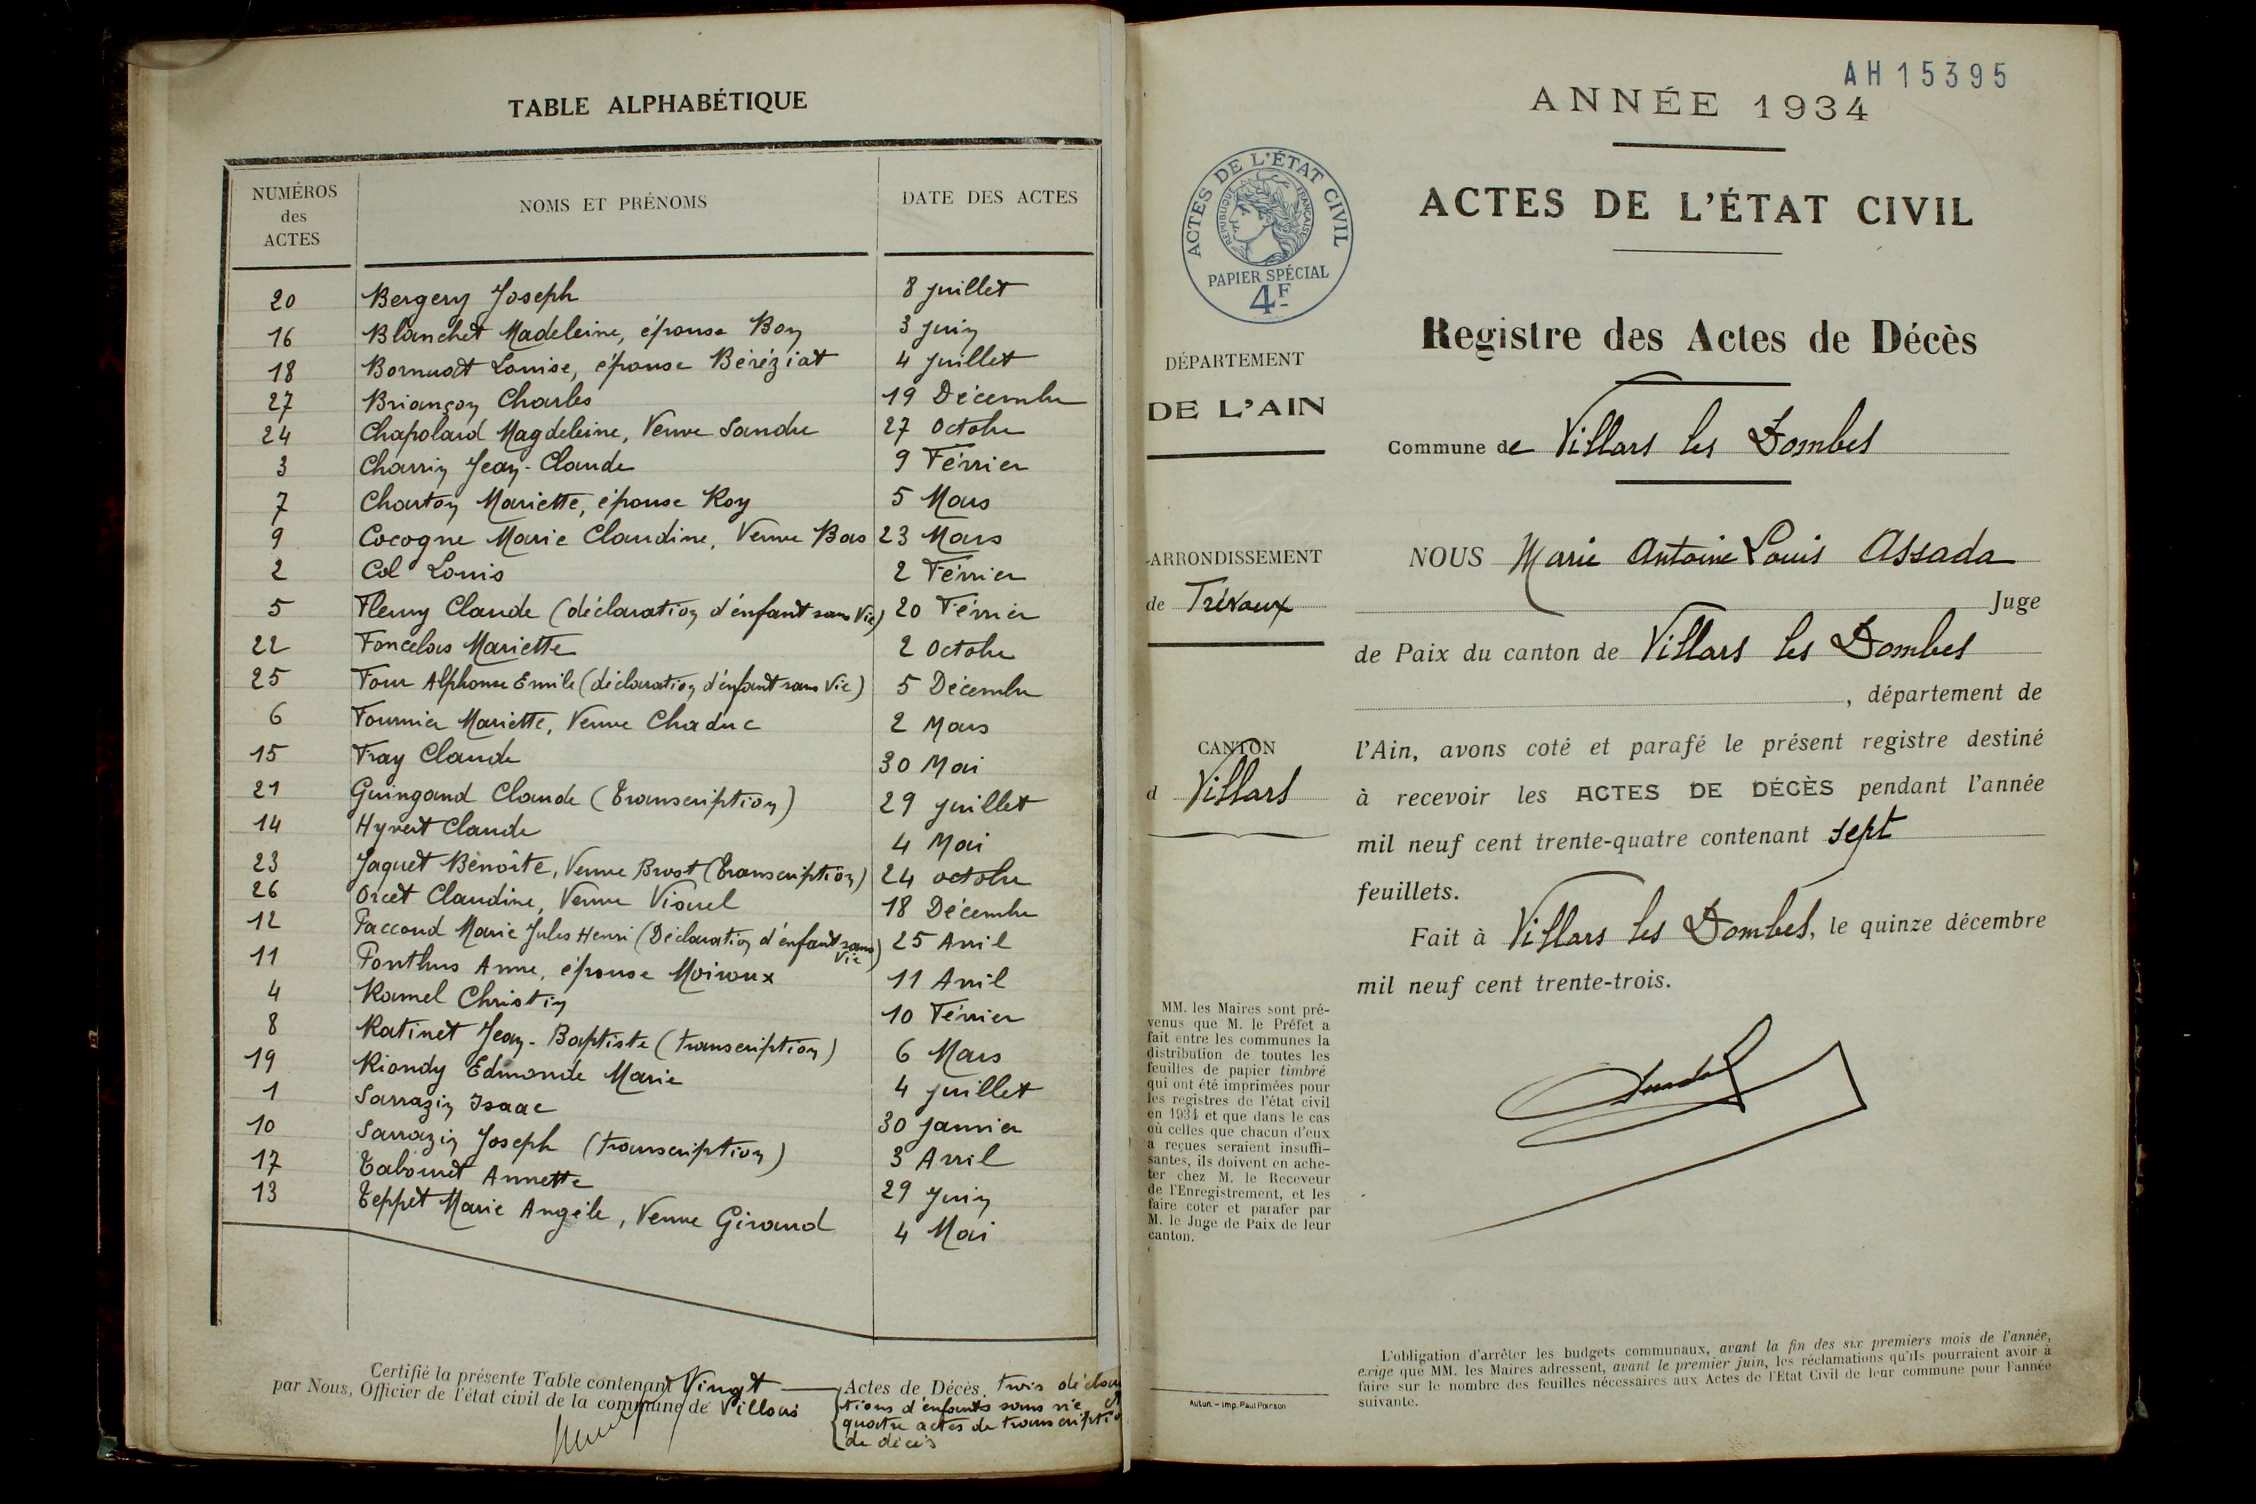 TABLE ALPHABÉTIQUE
NUMÉROS des ACTES NOMS ET PRÉNOMS DATE DES ACTES
20 Bergery Joseph 8 juillet
16 Blanchet Madeleine, épouse Boy 3 juin
18 Bornuat Louise, épouse Béréziat 4 juillet
27 Briançon Charles 19 Décembre
24 Chapolard Magdeleine, Veuve Sandre 27 octobre
3 Charrin Jean-Claude 9 Février
7 Charton Mariette, épouse Roy 5 Mars
9 Cocogne Marie Claudine, Veuve Bas 23 Mars
2 Col Louis 2 Février
5 Fleury Claude (déclaration d'enfant sans Vie) 20 Février
22 Foncelas Mariette 2 octobre
25 Four Alphonse Emile (déclaration d'enfant sans Vie) 5 Décembre
6 Fournier Mariette, Veuve Chaduc 2 Mars
15 Fray Claude 30 Mai
21 Guingand Claude (Transcription) 29 juillet
14 Hyvert Claude 4 Mai
23 Jaquet Benoîte, Veuve Brost (Transcription) 24 octobre
26 Orcet Claudine, Veuve Viornel 18 Décembre
12 Paccoud Marie Jules Henri (Déclaration d'enfant sans Vie) 25 Avril
11 Ponthus Anne, épouse Moiroux 11 Avril
4 Ramel Christin 10 Février
8 Ratinet Jean-Baptiste (transcription) 6 Mars
19 Riondy Edmonde Marie 4 juillet
1 Sarrazin Isaac 30 janvier
10 Sarrazin Joseph (transcription) 3 Avril
17 Tabouret Annette 29 juin
13 Teppet Marie Angèle, Veuve Giraud 4 Mai
Certifié la présente Table contenant Vingt Actes de Décès, trois déclara
tions d'enfants sans vie et
quatre actes de transcription
de décès
par Nous, Officier de l'état civil de la commune de Villars
AH 15395
ANNÉE 1934
ACTES DE L'ÉTAT CIVIL
RÉPUBLIQUE FRANÇAISE
PAPIER SPÉCIAL
4F
ACTES DE L'ÉTAT CIVIL
Registre des Actes de Décès
DÉPARTEMENT
DE L'AIN
Commune de Villars les Dombes
ARRONDISSEMENT
de Trévoux
CANTON
d Villars
NOUS Marie Antoine Louis Assada
Juge
de Paix du canton de Villars les Dombes
, département de
l'Ain, avons coté et parafé le présent registre destiné
à recevoir les ACTES DE DÉCÈS pendant l'année
mil neuf cent trente-quatre contenant sept
feuillets.
Fait à Villars les Dombes, le quinze décembre
mil neuf cent trente-trois.
MM. les Maires sont pré-
venus que M. le Préfet a
fait entre les communes la
distribution de toutes les
feuilles de papier timbré
qui ont été imprimées pour
les registres de l'état civil
en 1934 et que dans le cas
où celles que chacun d'eux
a reçues seraient insuffi-
santes, ils doivent en ache-
ter chez M. le Receveur
de l'Enregistrement, et les
faire coter et parafer par
M. le Juge de Paix de leur
canton.
Autun. - Imp. Paul Poirson
L'obligation d'arrêter les budgets communaux, avant la fin des six premiers mois de l'année,
exige que MM. les Maires adressent, avant le premier juin, les réclamations qu'ils pourraient avoir à
faire sur le nombre des feuilles nécessaires aux Actes de l'Etat Civil de leur commune pour l'année
suivante.